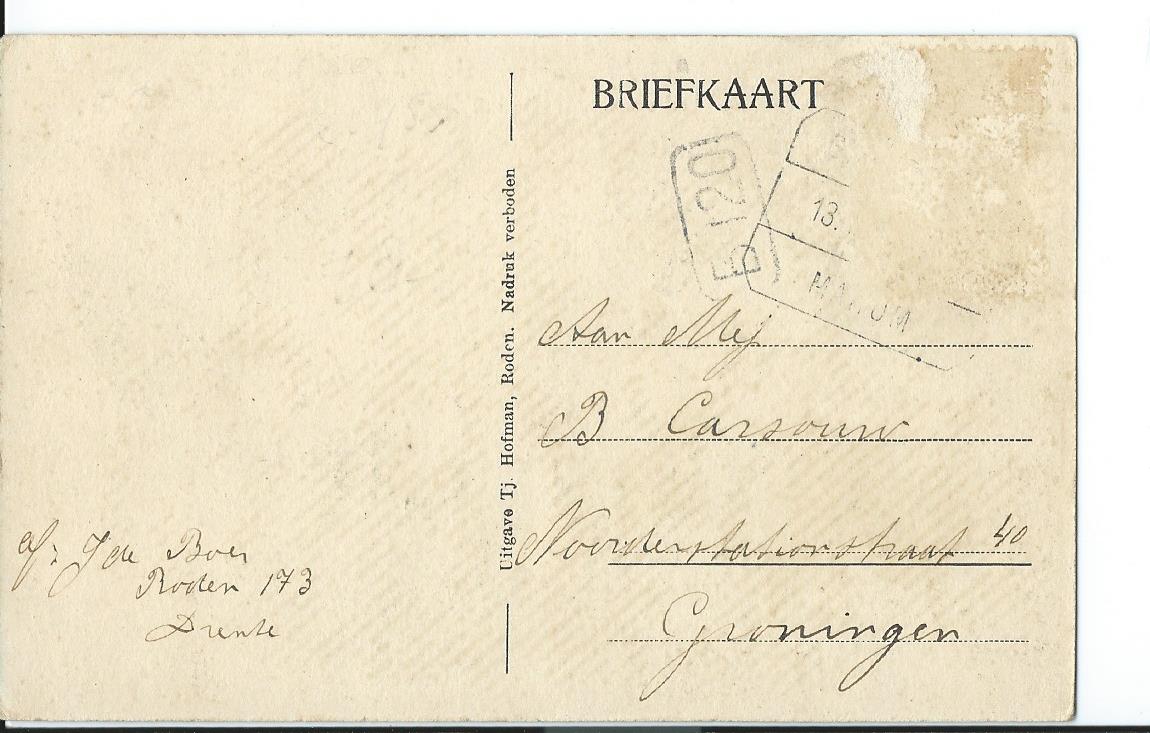 BRIEFKAART
B 120
13.
Uitgave Tj. Hofman, Roden. Nadruk verboden
Aan Mej
B Carsouw
Noorderstationstraat 40
Groningen
af: J de Boer
Roden 173
Drente